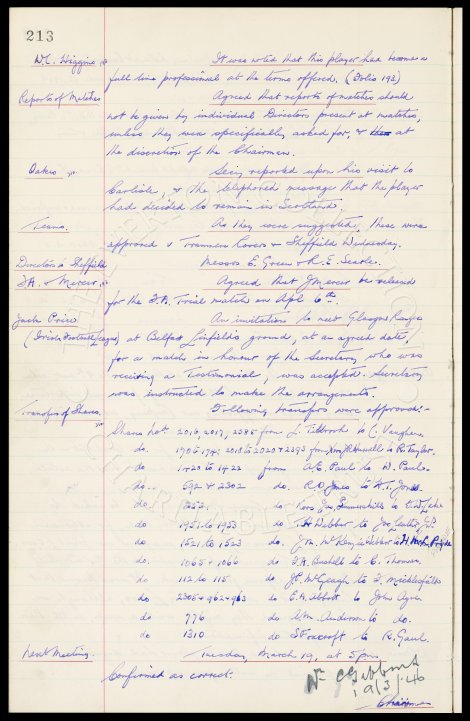 213
W.C. Higgins It was noted that this player had become a
full time professional at the terms offered. (Folio 193)
Reports of Matches Agreed that reports of matches should
not be given by individual Directors present at matches,
unless they were specifically asked for, & at
the discretion of the Chairman.
Oakes Secy reported upon his visit to
Carlisle, & the telephoned message that the player
had decided to remain in Scotland.
Teams. As they were suggested, these were
approved v Tranmere Rovers & Sheffield Wednesday.
Directors to Sheffield Messrs E. Green & R. E. Searle.
F.A. & Mercer Agreed that J Mercer be released
for the F.A. Trial match on Apl 6th.
Jack Price An invitation to meet Glasgow Rangers
(Irish Football League) at Belfast Linfield's ground, at an agreed date,
for a match in honour of the Secretary who was
receiving a Testimonial, was accepted. Secretary
was instructed to make the arrangements.
Transfers of Shares. Following transfers were approved:-
Shares Nos 2016, 2017, 2388 from J. to C. Vaughan.
do. 2018 to 2020 & 2393 from to R. Taylor.
do 1420 to 1422 from A.E. Paul to W. Paul.
do. 592 & 2302 do. R.O. Jones to H.T. Jones.
do 252 do.
do 1951 to 1953 do T.H. Webber to
do 1521 to 1523 do.
do. 1065 & 1066 do F.R. to C. Thomson.
do 112 to 115 do J.P. McGeagh to F. Micklesfield
do 2305 & 962 & 963 do E.A. Abbott to John
do 776 do Wm. Anderson to do.
do 1310 do S Foxcroft to R. Gaul.
Next Meeting. Tuesday, March 19, at 5 pm.
Confirmed as correct:
19/3/46
Chairman